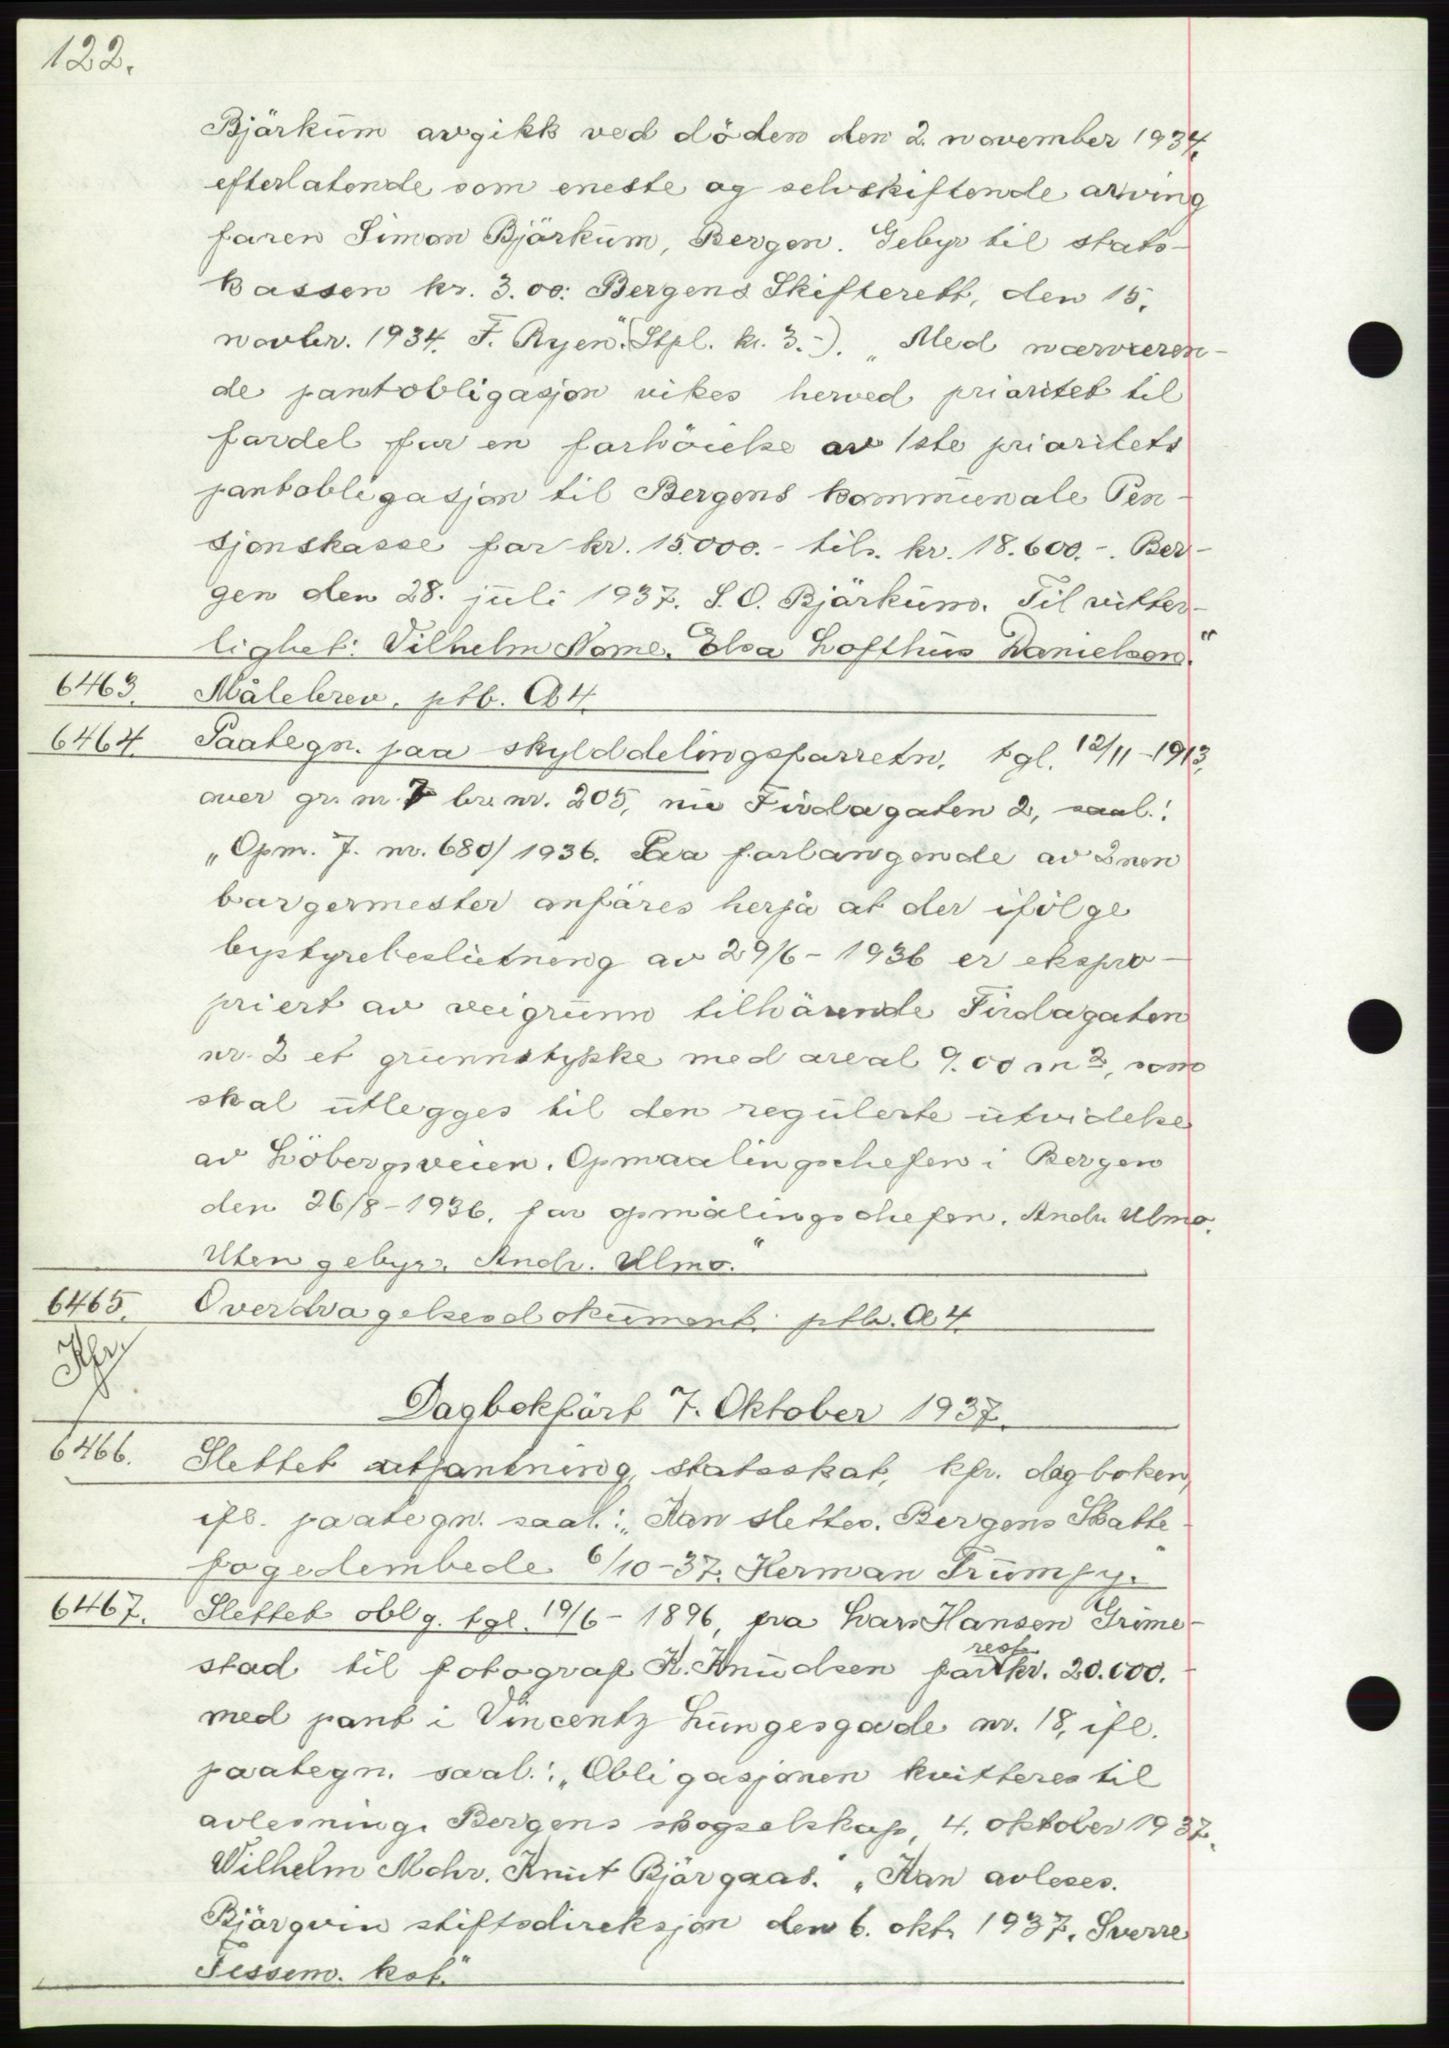 122.
Bjärkum avgikk ved döden den 2. november 1934,
efterlatende som eneste og selvskiftende arving
faren Simon Bjärkum, Bergen. Gebyr til stats-
kassen kr. 3.00: Bergens Skifterett, den 15.
novbr. 1934. F. Ryen." (Stpl. kr. 3.-). „Med nærværen-
de pantobligasjon vikes herved prioritet til
fordel for en forhöielse av 1ste prioritets
pantobligasjon til Bergens kommunale Pen-
sjonskasse for kr. 15.000.- til kr. 18.600.-. Ber-
gen den 28. juli 1937. S.O. Bjärkum. Til vitter-
lighet: Vilhelm Nome. Elsa Lofthus Danielsen."
6463. Målebrev, ptb. A4.
6464. Paategn. paa skylddelingsforretn. tgl. 12/11-1913,
over gr. nr. 7 br. nr. 205, nu Firdagaten 2, saal.:
„Opm. J. nr. 680/1936. Paa forlangende av 2nen
borgermester anföres herpå at der ifölge
bystyrebeslutning av 29/6-1936 er ekspro-
priert av veigrunn tilhörende Firdagaten
nr. 2 et grunnstykke med areal 9.00 m2, som
skal utlegges til den regulerte utvidelse
av Löbergsveien. Opmaalingschefen i Bergen
den 26/8-1936. for opmålingschefen. Andr. Ulmo.
Uten gebyr. Andr. Ulmo."
6465. Overdragelsesdokument. ptb. A4.
Kfr.
Dagbokfört 7. Oktober 1937.
6466. Slettet utpantning, statsskat, kfr. dagboken,
ifl. paategn. saal.: „Kan slettes. Bergens Skatte-
fogedembede 6/10-37. Herman Trumpy."
6467. Slettet oblg. tgl. 19/6-1896, fra Lars Hansen Grime-
stad til fotograf K. Knudsen for rest kr. 20.000.
med pant i Vincentz Lungesgade nr. 18, ifl.
paategn. saal.: „Obligasjonen kvitteres til
avlesning. Bergens skogselskap, 4. oktober 1937.
Wilhelm Mohr. Knut Bjärgaas." „Kan avleses.
Bjärgvin stiftsdireksjon den 6. okt. 1937. Sverre
Fessem. kst."